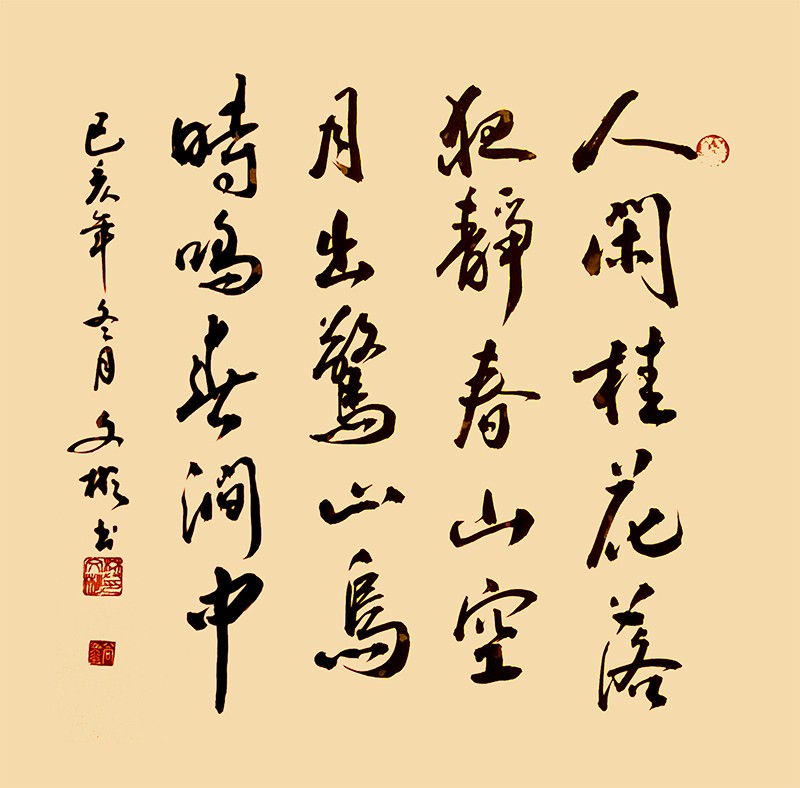 人閑桂花落
夜靜春山空
月出驚山鳥
時鳴春澗中
己亥年冬月文彬書